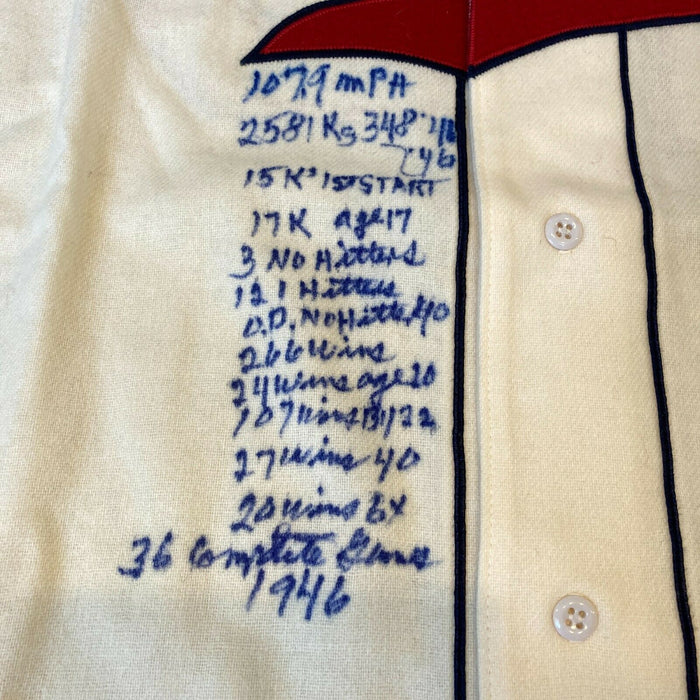 107.9 mPH
2581 Ks 348 '46
'46
15 K's 1st START
17 K age 17
3 No Hitters
12 1 Hitters
O.D. No Hitter 40
266 wins
24 wins age 20
107 wins BY 22
27 wins 40
20 wins 6x
36 Complete Games
1946